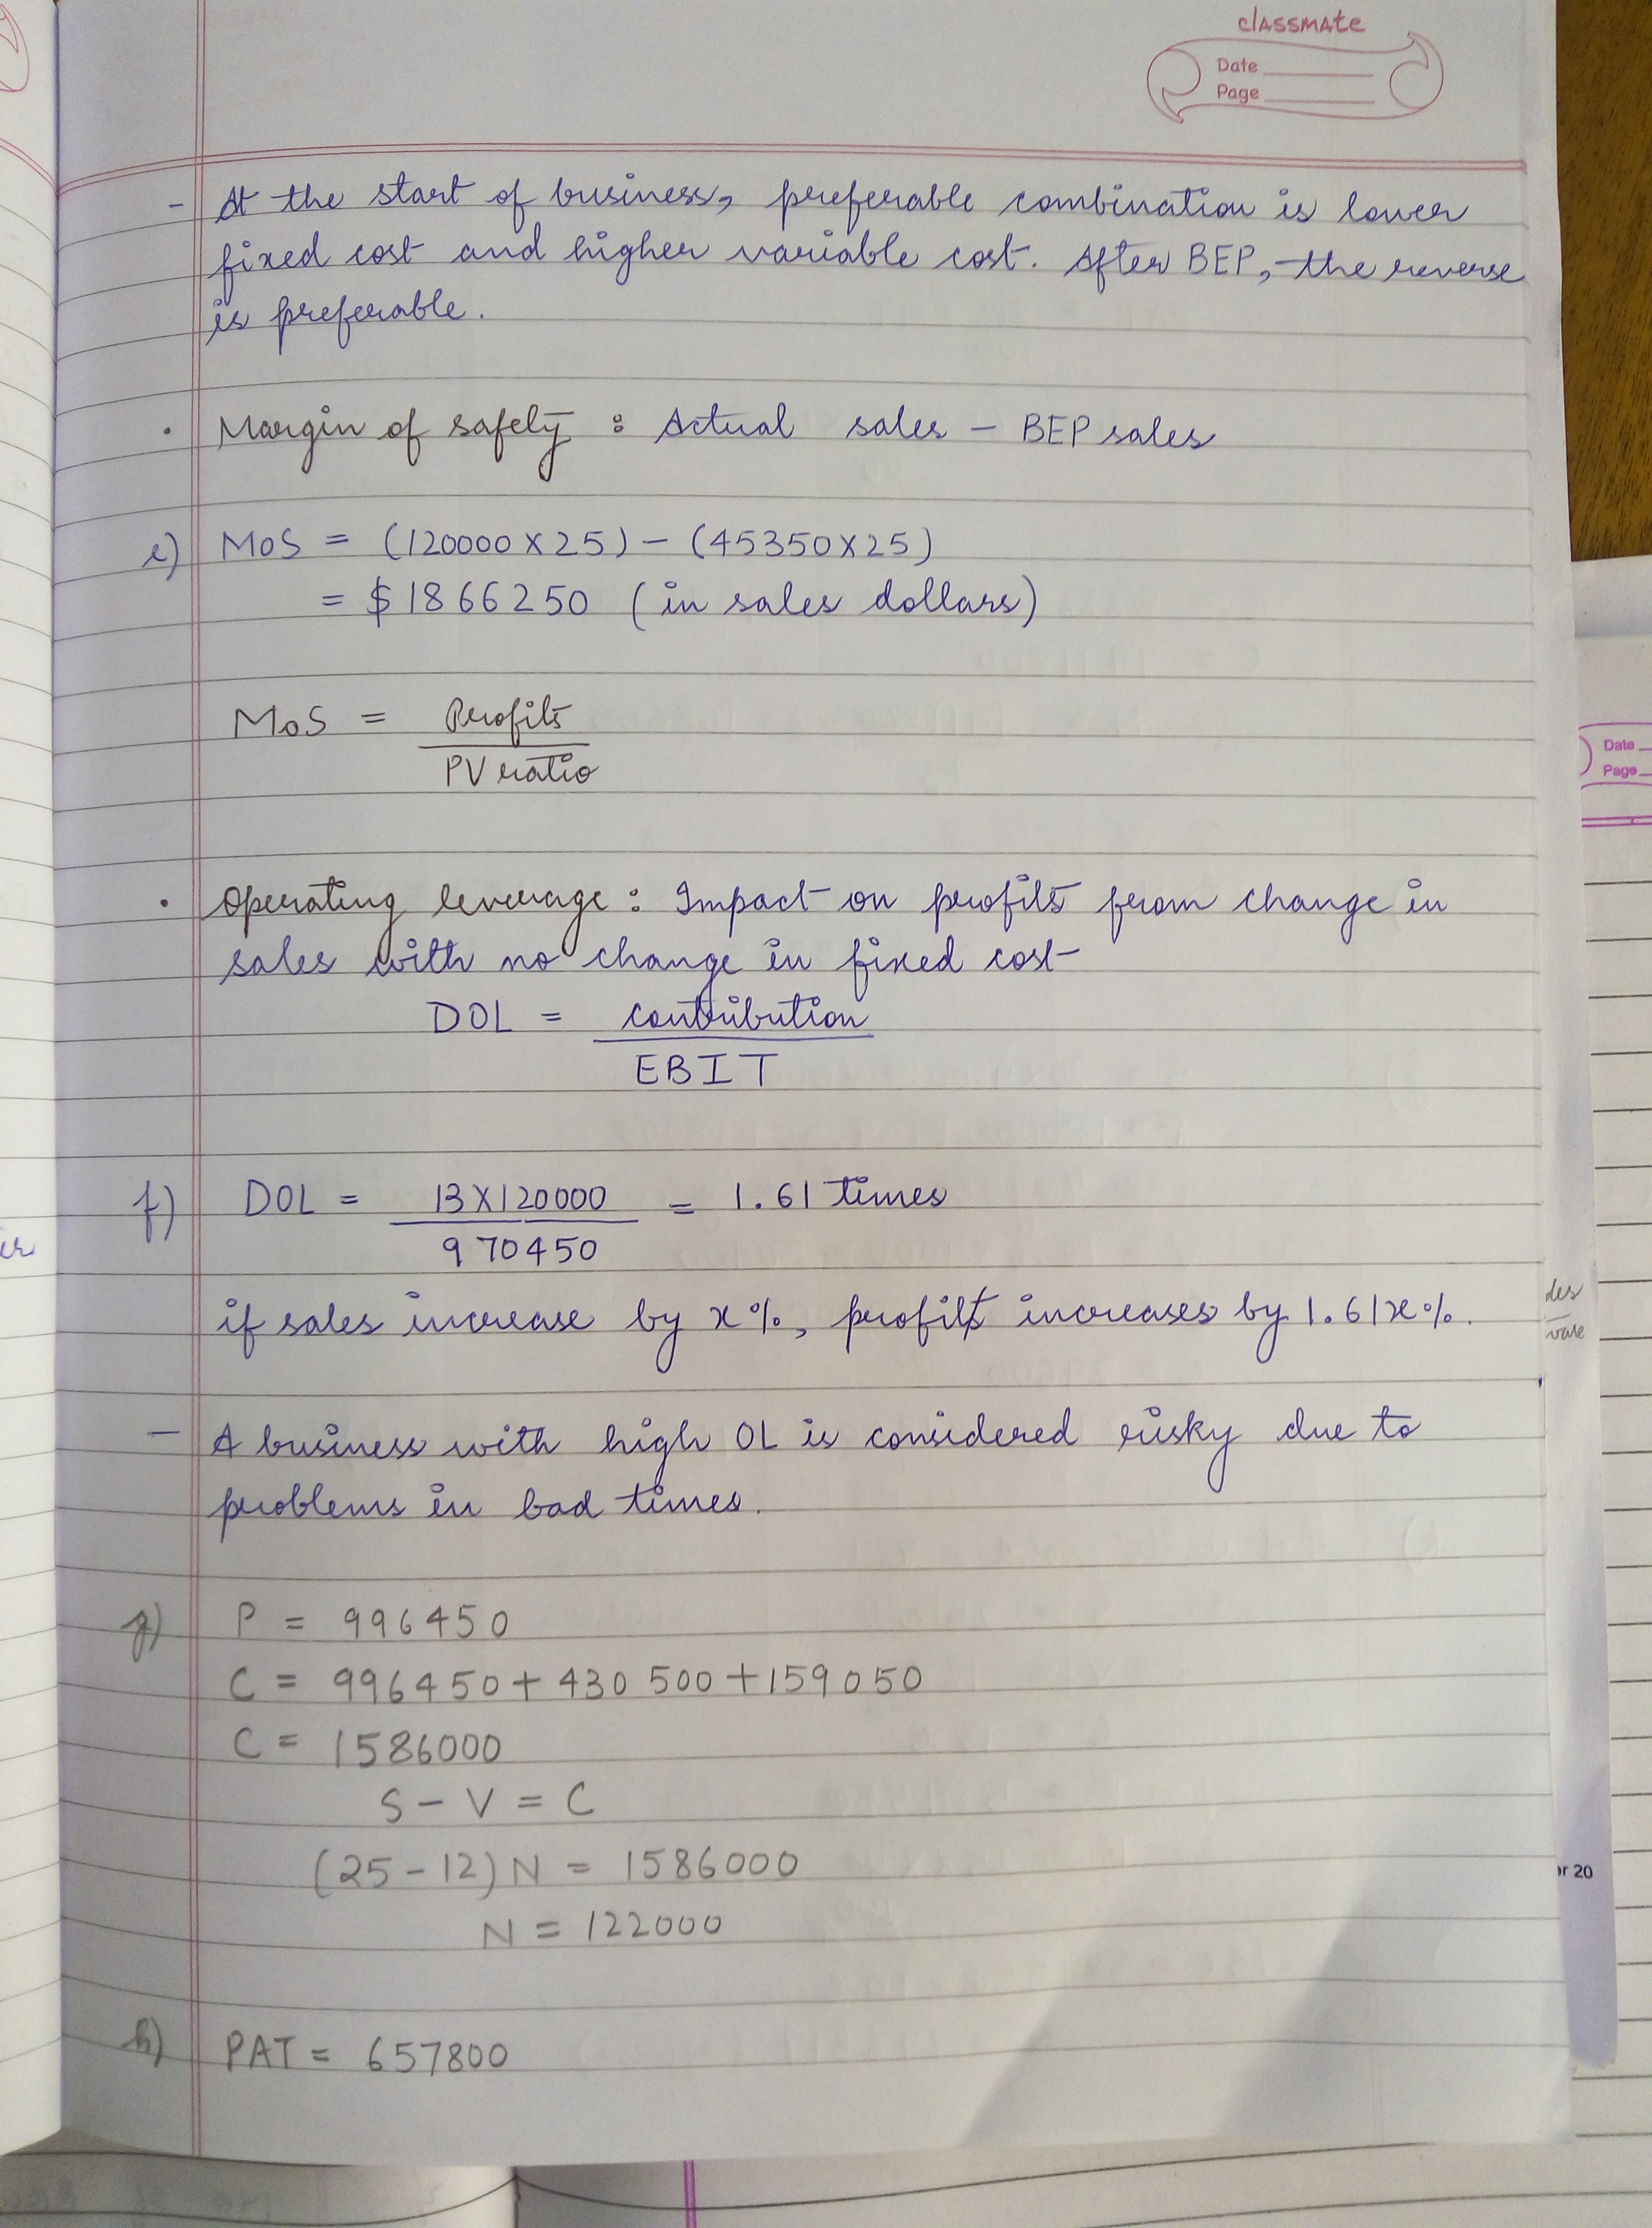 classmate
Date
Page
- At the start of business, preferable combination is lower
fixed cost and higher variable cost. After BEP, the reverse
is preferable.
· Margin of safety : Actual sales - BEP sales
e) MoS = (120000 x 25) - (45350 x 25)
= $ 1866250 (in sales dollars)
MoS = Profits
PV ratio
· Operating leverage : Impact on profits from change in
sales with no change in fixed cost
DOL = contribution
EBIT
f) DOL = 13 X 120000 = 1.61 times
970450
if sales increase by x%, profit increases by 1.61x%.
- A business with high OL is considered risky due to
problems in bad times.
g) P = 996450
C = 996450 + 430 500 + 159050
C = 1586000
S - V = C
(25 - 12) N = 1586000
N = 122000
h) PAT = 657800
Date
Page
des